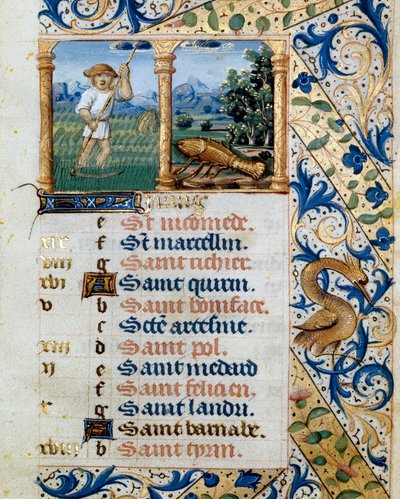 Juing
e St nicomede.
xix f St marcellin.
viii g Saint richier.
xvi A Saint quirin.
v b Saint boniface.
c Scte
xiii d Saint pol.
ij e Saint medard
f Saint felicien.
g Saint landri.
A Saint barnabe.
xviii b Saint